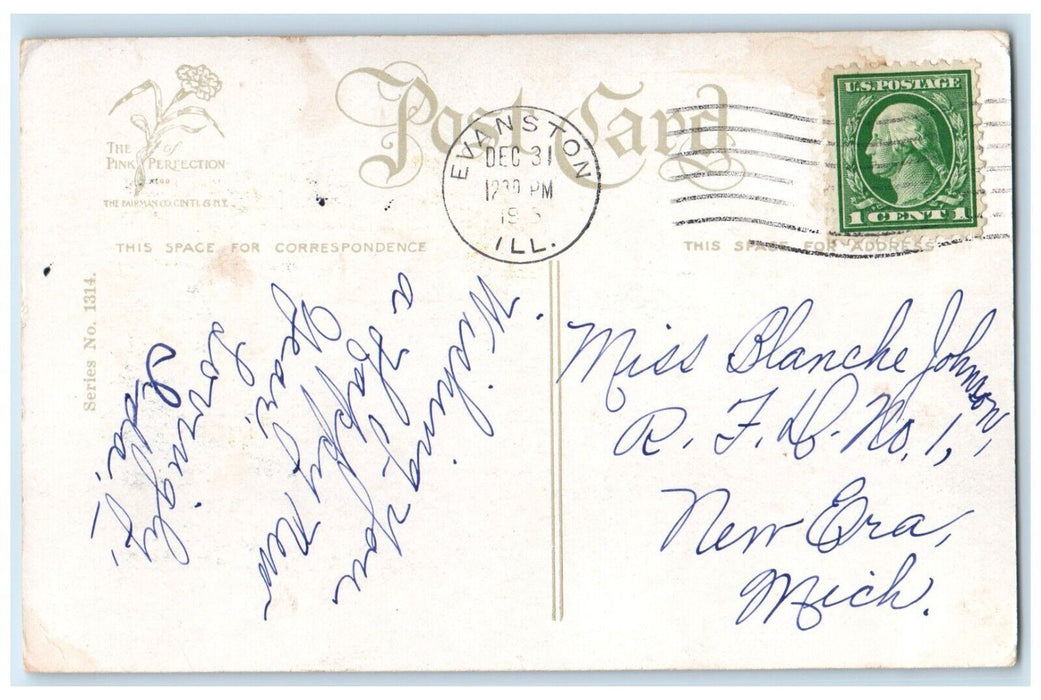 Post Card
THE PINK of PERFECTION
THE FAIRMAN CO. CINTI. & N.Y.
EVANSTON
DEC 31
12 30 PM
ILL.
U.S. POSTAGE
1 CENT 1
THIS SPACE FOR CORRESPONDENCE
THIS SPACE FOR ADDRESS
Series No. 1314.
Wishing you
a Happy New
Year,
Lovingly,
Ida.
Miss Blanche Johnson,
R. F. D. No. 1,
New Era,
Mich.